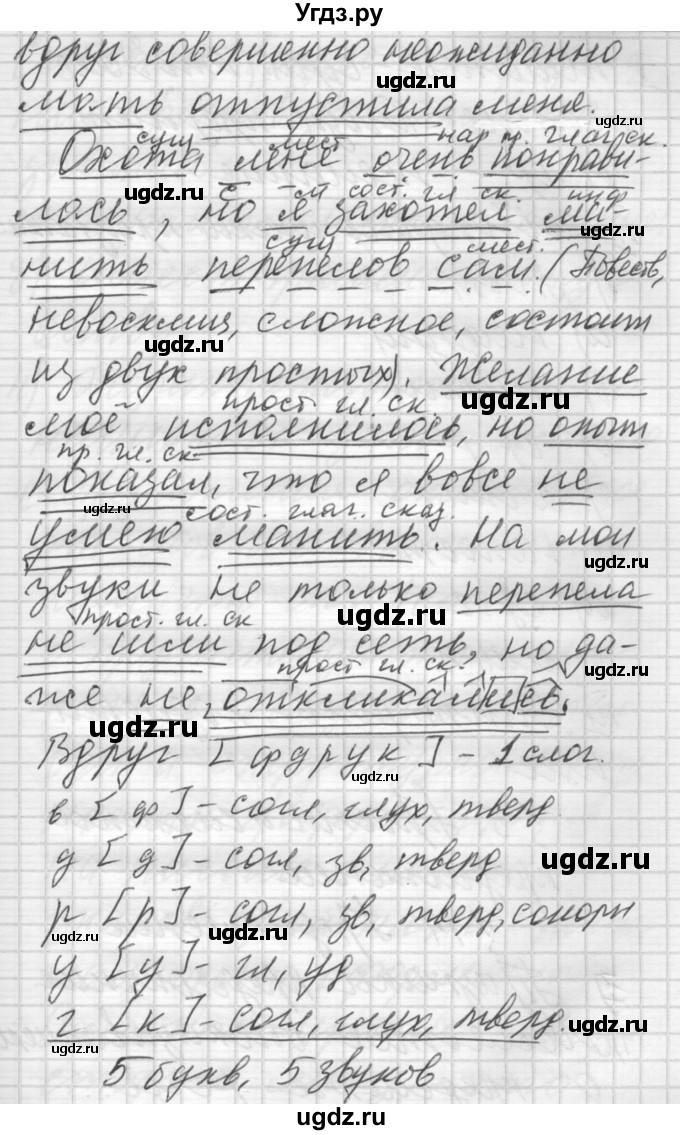 Угдз.ру
вдруг совершенно неожиданно
мать отпустила меня.
сущ мест нар пр. глаг ск.
Охота мене очень понрави-
с -м сост. гл ск. инф
лась, но я захотел ма-
сущ мест.
нить перепелов сам. (Повеств,
невосклиц, сложное, состоит
из двух простых). Желание
прост. гл. ск.
моё исполнилось, но опыт
пр. гл. ск
показал, что я вовсе не
сост. глаг. сказ.
умею манить. На мои
звуки не только перепела
прост. гл. ск
не шли под сеть, но да-
прост гл. ск.
же не откликались.
Вдруг [фдрук] - 1 слог.
в [ф] - согл, глух, тверд.
д [д] - согл, зв, тверд
р [р] - согл, зв, тверд, сонорн
у [у] - гл, уд
г [к] - согл, глух, тверд.
5 букв, 5 звуков
ugdz.ru